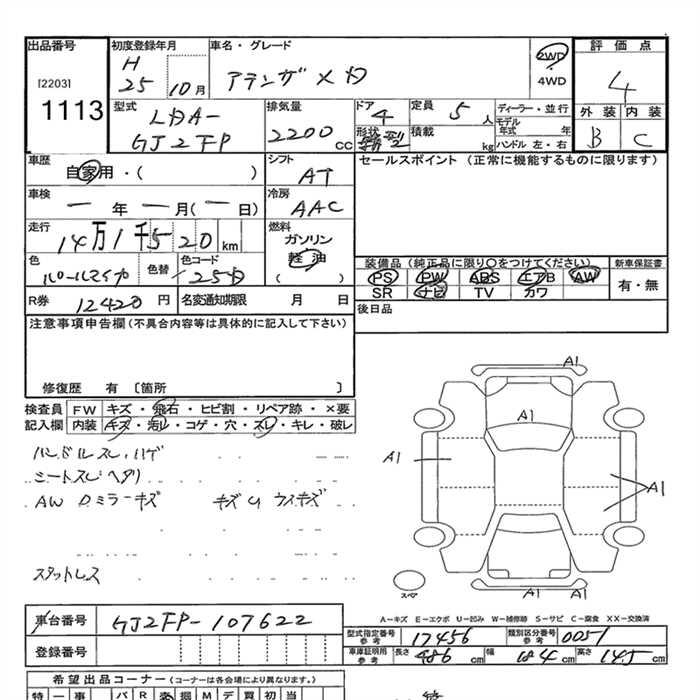 出品番号 初度登録年月 車名・グレード 評価点
[2203] H 25 10月 アテンザ 2WD・4WD 4
1113
型式 排気量 ドア 定員 ディーラー・並行 外装 内装
LDA-GJ2FP 2200 CC 4 5人 モデル年式 年 B C
形状 積載 kg ハンドル 左・右
車歴 シフト セールスポイント (正常に機能するものに限ります)
自家用・( ) AT
車検 冷房
ー年ー月(ー日) AAC
走行 燃料
14万1千520km ガソリン
軽油
( )
色 色替 色コード 装備品 (純正品に限り〇をつけてください。) 新車保証書
25D PS PW ABS エアB AW 有・無
SR ナビ TV カワ
R券 12420円 名変通知期限 月 日 後日品
注意事項申告欄(不具合内容等は具体的に記入して下さい)
修復歴 有 〔箇所 〕
検査員 FW キズ・飛石・ヒビ割・リペア跡・×要
記入欄 内装 キズ・汚レ・コゲ・穴・スレ・キレ・破レ
ハンドルスレ、ハゲ
シートスレ ヘタリ
AW Dミラーキズ キズU ウスキズ
スタットレス
A1
A1
A1
A1
A1
スペア
A-キズ E-エクボ U-凹み W-補修跡 S-サビ C-腐食 XX-交換済
車台番号 GJ2FP-107622
型式指定番号 参考 17456 類別区分番号 参考 0051
登録番号
車庫証明用 参考 長さ 486cm 幅 184cm 高さ 145cm
希望出品コーナー (コーナーは各会場により異なります。)